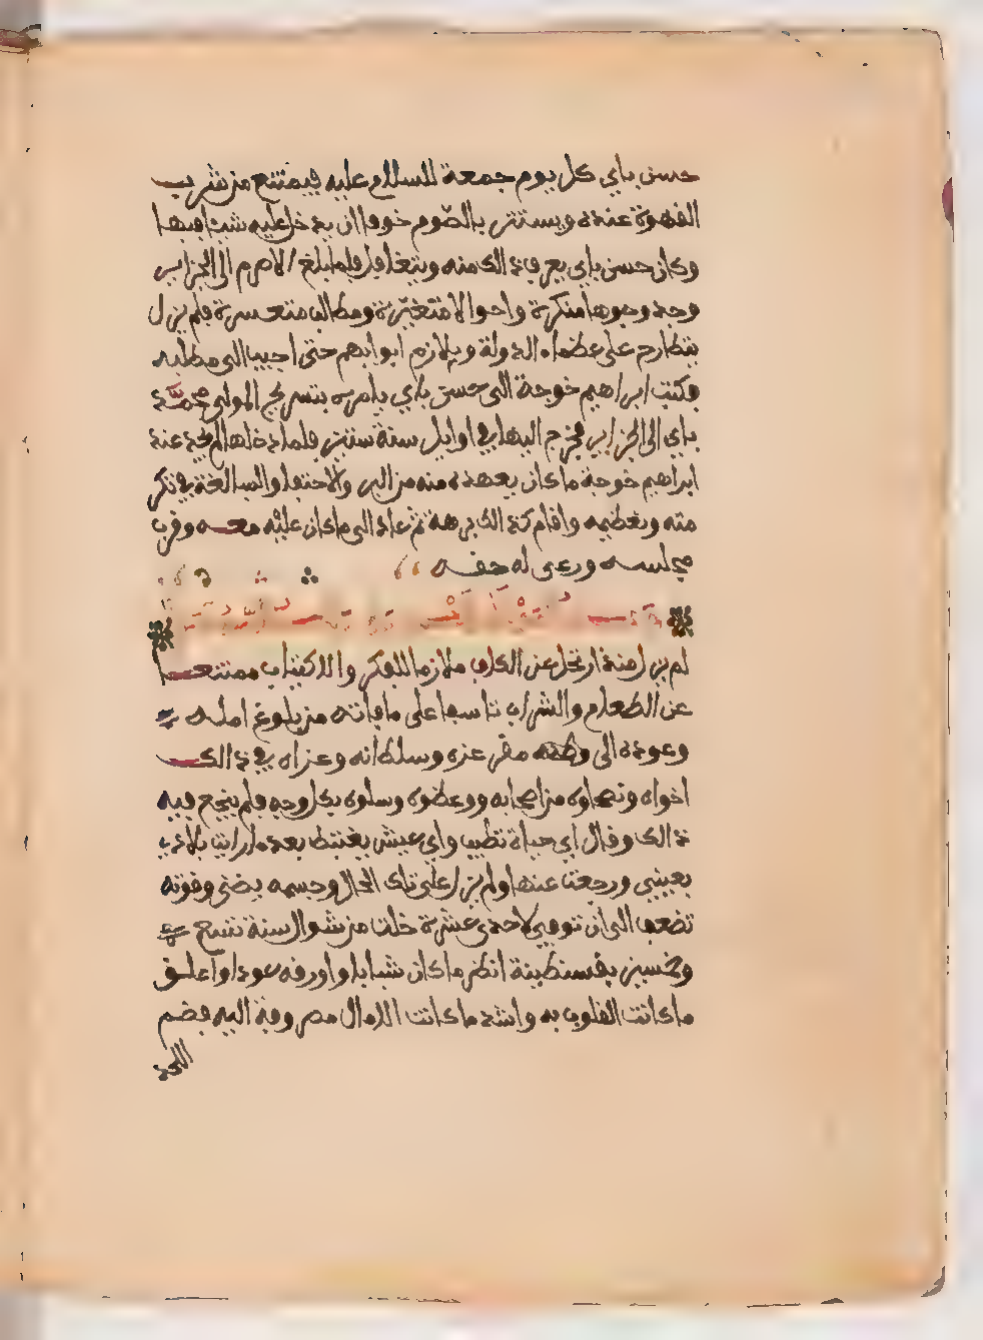 حسن باي كل يوم جمعة للسلام عليه فيمتنع من شرب
القهوة عنده ويستتر بالصوم خوفا ان يدخل عليه شيئا فيها
وكان حسن باي يعرف ذالك منه ويتغافل فلما بلغ الامر م الى الجزاير
وجد وجوها منكرة واحوالا متغيّرة ومطالب متعسرة فلم يزل
يتطارح على عظماء الدولة ويلازم ابوابهم حتى اجيب الى مطلبه
فكتب ابراهيم خوجة الى حسن باي يامره بتسريح المولى محمّد
باي الى الجزاير فخرج اليها في اوايل سنة ستين فلما دخلها لم يجد عند
ابراهيم خوجة ما كان يعهده منه من البر والاحتفا والمبالغة في تكر
مته وتعظيمه واقام كذالك برهة ثم عاد الى ما كان عليْه معه وقرب
مجلسه ورعى له حقه

لم يزل منذ ارتحل عن الكاف ملازما للفكر والاكتياب ممتنعا
عن الطعام والشراب تاسفا على ما فاته من بلوغ امله
وعوده الى وطنه مقر عزه وسلطانه وعزاه في ذالك
اخواه ونصحاوه من اصحابه ووعظوه وسلوه بكل وجه فلم ينجع فيه
ذالك وقال اي حياة تطيب واي عيش يغتبط بعد ما رايت بلادي
بعيني ورجعت عنها ولم يزل على تلك الحال وجسمه يضنى وقوته
تضعف الى ان توفي لاحدى عشرة خلت من شوال سنة تسع
وخمسين بقسنطينة انظر ما كان شبابا واورقه عودا واعلق
ما كانت القلوب به واشد ما كانت الامال مصروفة اليه فضم
اللحد